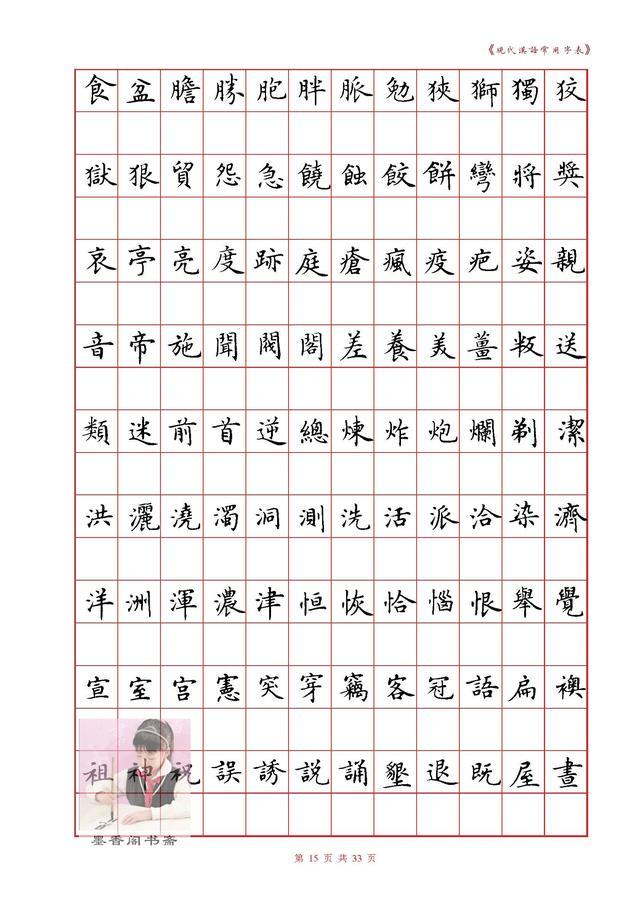 《现代汉语常用字表》
食盆膽勝胞胖脈勉狹獅獨狡
獄狠貿怨急饒蝕餃餅彎將獎
哀亭亮度跡庭瘡瘋疫疤姿親
音帝施聞閥閣差養美薑叛送
類迷前首逆總煉炸炮爛剃潔
洪灑澆濁洞測洗活派洽染濟
洋洲渾濃津恒恢恰惱恨舉覺
宣室宮憲突穿竊客冠語扁襖
祖神祝誤誘説誦墾退既屋晝
墨香阁书斋
第 15 页 共 33 页